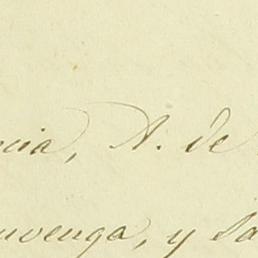 ncia, A. de
nvenga, y sa